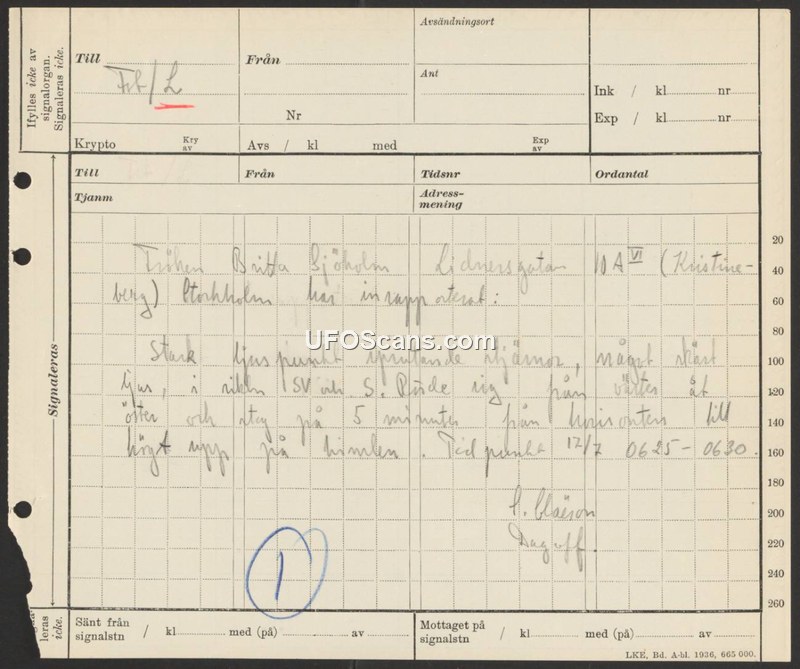 Ifylles icke av
signalorgan.
Signaleras icke.
Till
Fst/L
Från
Nr
Avsändningsort
Ant
Ink / kl nr
Exp / kl nr
Krypto
Kry
av
Avs / kl med
Exp
av
Till Från Tidsnr Ordantal
Tjanm
Adress-
mening
Signaleras
20
40
60
80
100
120
140
160
180
200
220
240
260
Fröken Britta Sjöholm Lidnersgatan 10 A VI (Kristine-
berg) Stockholm har inrapporterat:
Stark ljuspunkt sprutande stjärnor, något skärt
ljus, i riktn SV och S. Rörde sig från väster åt
öster och steg på 5 minuter från horisonten till
högt upp på himlen. Tidpunkt 17/7 0625-0630.
Dagoff.
1
UFOScans.com
leras
icke.
Sänt från
signalstn / kl med (på) av
Mottaget på
signalstn / kl med (på) av
LKE, Bd. A-bl. 1936, 665 000.